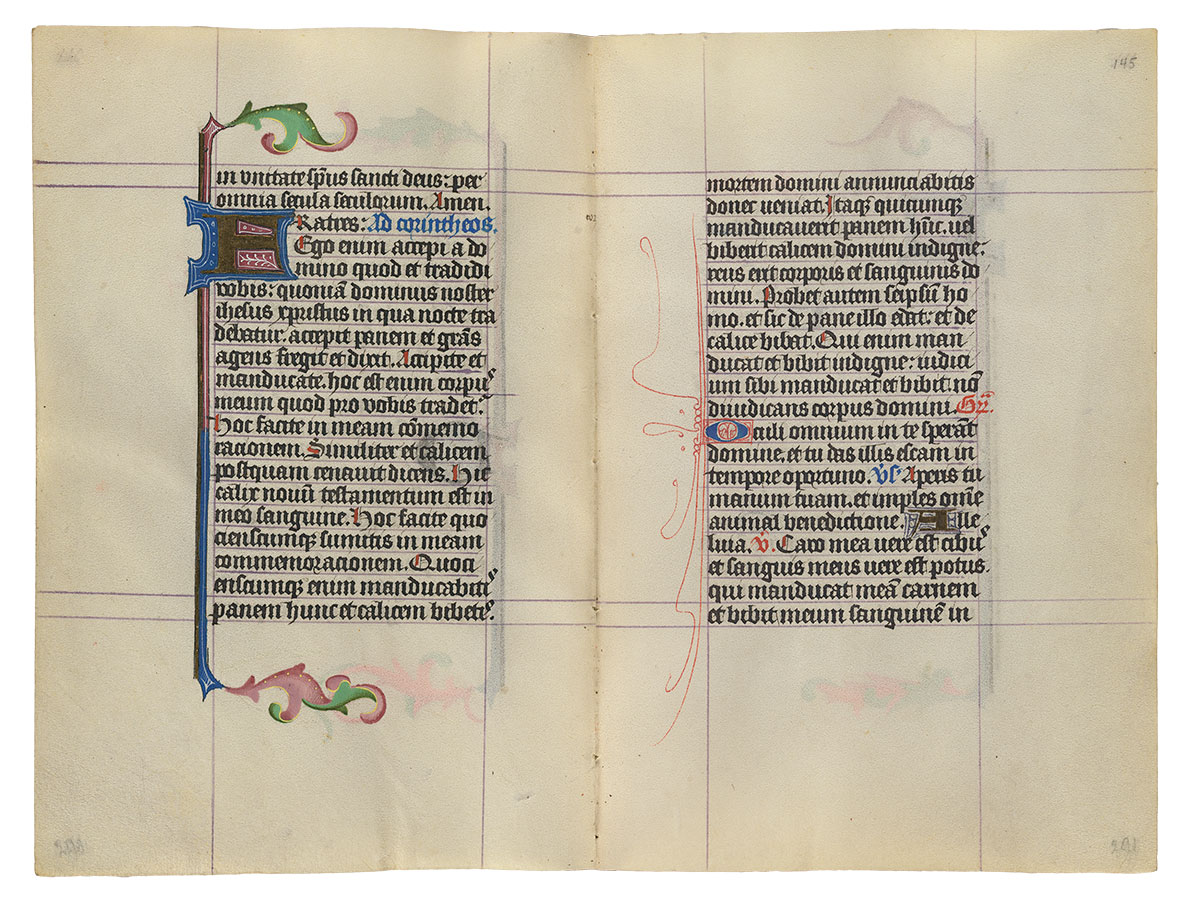 in vnitate sp̄us sancti deus: per
omnia secula seculorum. Amen.
FRatres: Ad corintheos.
Ego enim accepi a do
mino quod et tradidi
vobis: quoniā dominus noster
ihesus xpristus in qua nocte tra
debatur: accepit panem et grās
agens fregit et dixit. Accipite et
manducate. hoc est enim corpus
meum quod pro vobis tradet.
Hoc facite in meam cōmemo
racionem. Similiter et calicem
postquam cenauit dicens. Hic
calix nouū testamentum est in
meo sanguine. Hoc facite quo
cienscumqꝫ sumitis in meam
commemoracionem. Quoci
enscumqꝫ enim manducabitis
panem hunc et calicem bibetis.
145
mortem domini annunciabitis
donec veniat. Itaqꝫ quicunqꝫ
manducauerit panem hūc uel
biberit calicem domini indigne:
reus erit corporis et sanguinis do
mini. Probet autem seipsum ho
mo. et sic de pane illo edat: et de
calice bibat. Qui enim man
ducat et bibit indigne: iudici
um sibi manducat et bibit. nō
diiudicans corpus domini. Gr̄.
Oculi omnium in te sperāt
domine. et tu das illis escam in
tempore oportuno. Vs Aperis tu
manum tuam. et imples omē
animal benedictione. Alle
luia. V. Caro mea vere est cibus
et sanguis meus vere est potus.
qui manducat meā carnem
et bibit meum sanguinē in